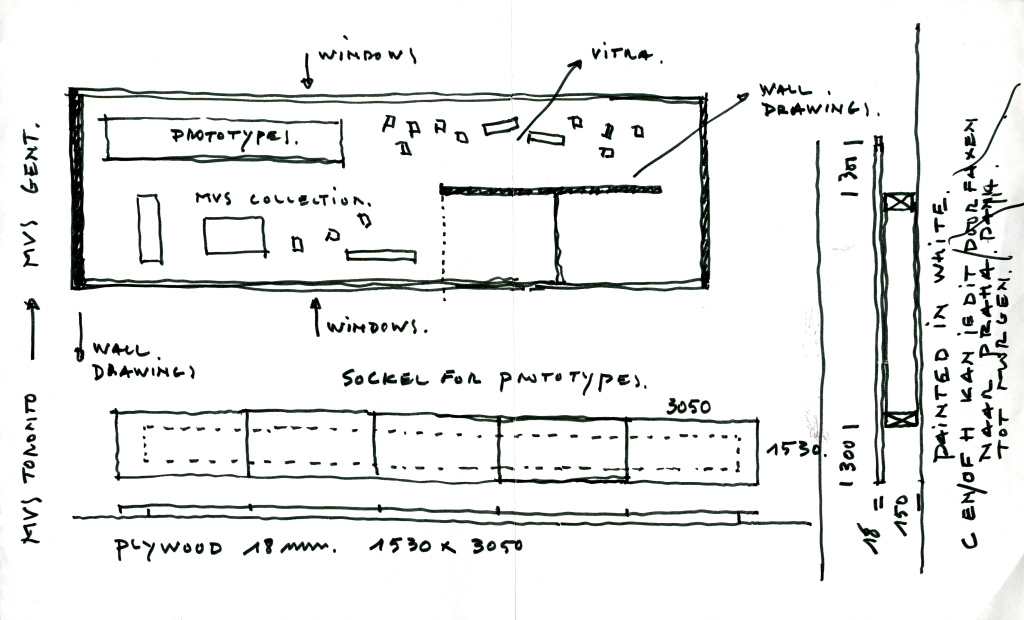 WINDOWS
VITRA.
WALL.
DRAWINGS.
PROTOTYPES.
MVS COLLECTION.
WINDOWS.
WALL.
DRAWINGS
MVS TORONTO → MVS GENT.
SOCKEL FOR PROTOTYPES.
3050
1530.
PLYWOOD 18 mm. 1530 x 3050
300
300
18
150
PAINTED IN WHITE.
C EN/OF H KAN IEDIT DOORFAXEN
NAAR PRAHA. DANK.
TOT MORGEN.